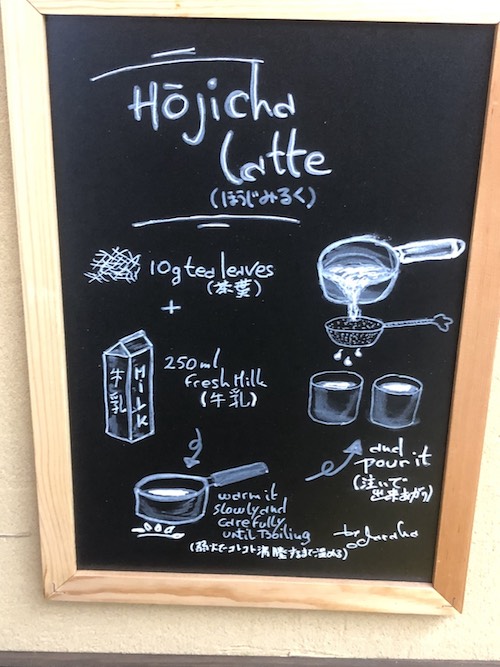 Hōjicha
Latte
(ほうじみるく)
10g tea leaves
(茶葉)
+
牛乳
MILK
250ml
fresh Milk
(牛乳)
warm it
slowly and
carefully
until boiling
and
pour it
(注いで
出来あがり)
by